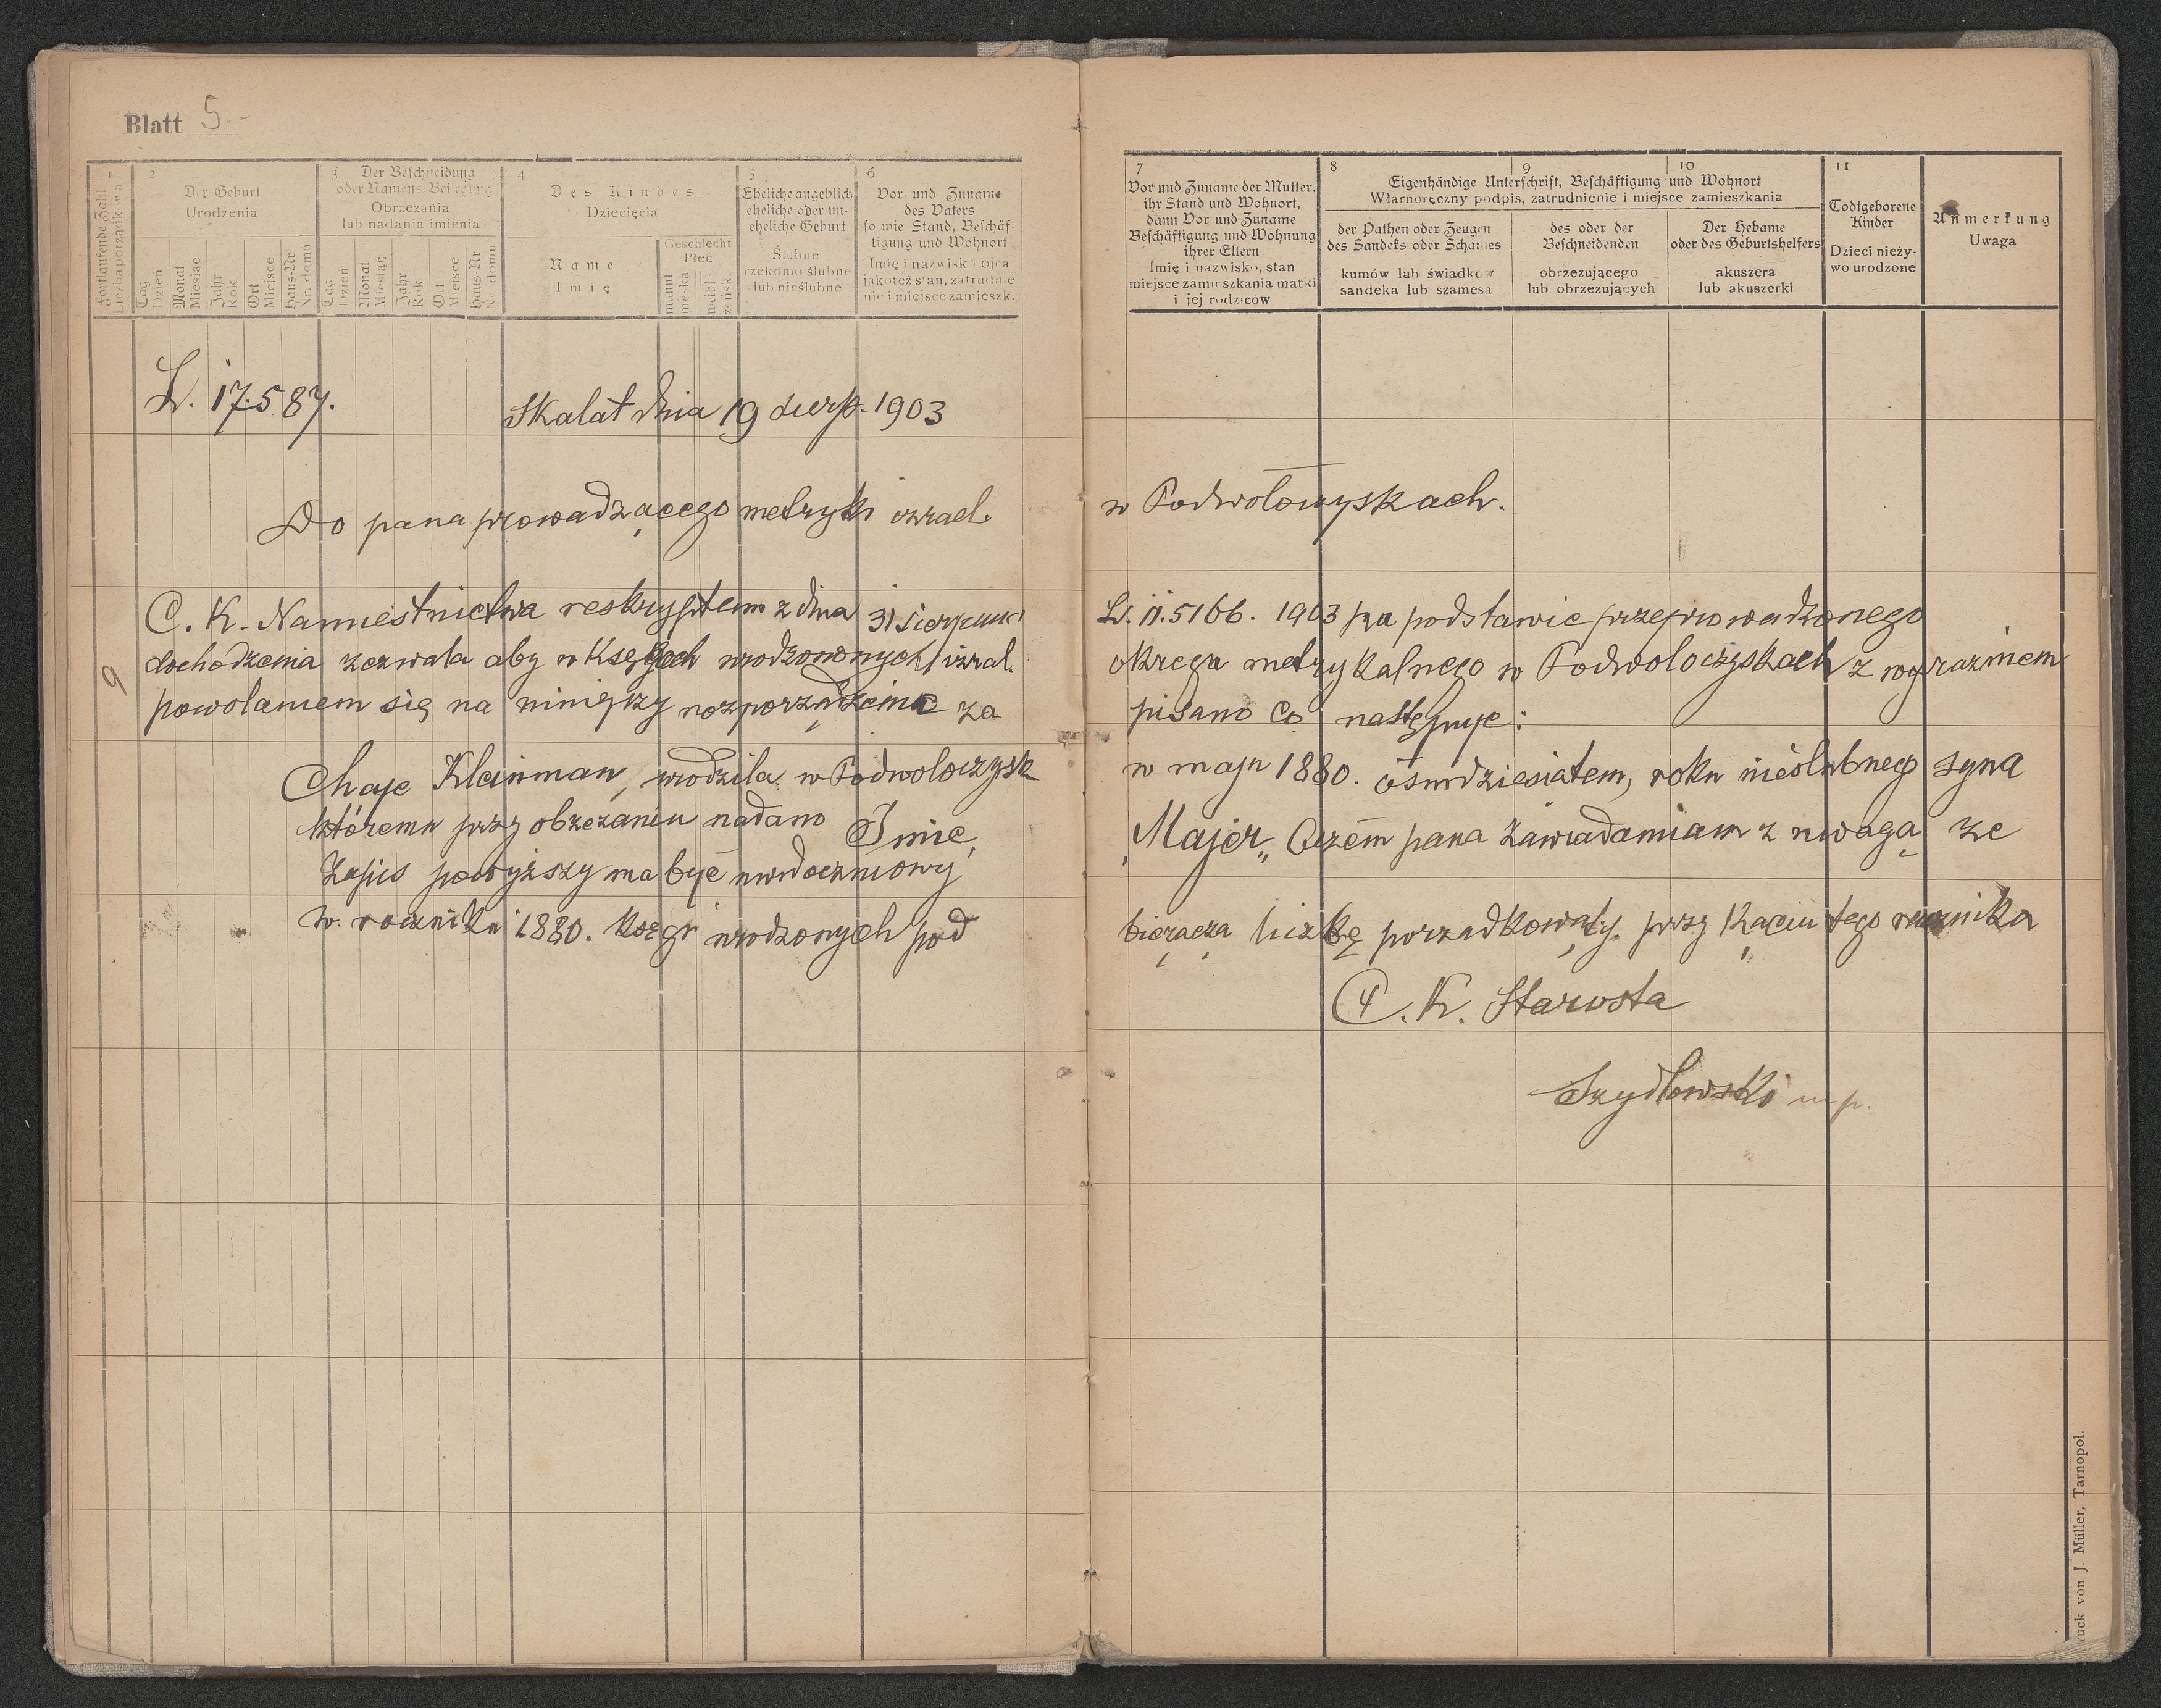 Blatt 5.-
1
Fortlaufende Zahl
Liczba porządkowa
2
Der Geburt
Urodzenia
Tag
Dzień
Monat
Miesiąc
Jahr
Rok
Ort
Miejsce
Haus-Nr
Nr. domu
3 Der Beschneidung
oder Namens-Beilegung
Obrzezania
lub nadania imienia
Tag
Dzień
Monat
Miesiąc
Jahr
Rok
Ort
Miejsce
Haus-Nr
Nr. domu
4
Des Kindes
Dziecięcia
Name
Imię
Geschlecht
Płeć
männl
męska
weibl.
żeńsk.
5
Eheliche angeblich
eheliche oder un-
eheliche Geburt
Ślubne
rzekomo ślubne
lub nieślubne
6
Vor- und Zuname
des Vaters
so wie Stand, Beschäf-
tigung und Wohnort
Imię i nazwisko ojca
jakoteż stan, zatrudnie
nie i miejsce zamieszk.
7
Vor und Zuname der Mutter,
ihr Stand und Wohnort,
dann Vor und Zuname
Beschäftigung und Wohnung
ihrer Eltern
Imię i nazwisko, stan
miejsce zamieszkania matki
i jej rodziców
8 9 10
Eigenhändige Unterschrift, Beschäftigung und Wohnort
Własnoręczny podpis, zatrudnienie i miejsce zamieszkania
der Pathen oder Zeugen
des Sandeks oder Schames
kumów lub świadków
sandeka lub szamesa
des oder der
Beschneidenden
obrzezującego
lub obrzezujących
Der Hebame
oder des Geburtshelfers
akuszera
lub akuszerki
11
Todtgeborene
Kinder
Dzieci nieży-
wo urodzone
Anmerkung
Uwaga
L. 17.587. Skałat dnia 19 sierp. 1903
Do pana prowadzącego metryki izrael. w Podwołoczyskach.
9
C. K. Namiestnictwa reskryptem z dnia 31 sierpnia L. 11.5166. 1903 na podstawie przeprowadzonego
dochodzenia zezwala aby w księgach urodzononych izrael. okręgu metrykalnego w Podwołoczyskach z wyraźniem
powołaniem się na niniejszy rozporządzenie za pisano co następuje:
Chaje Kleinman, urodziła w Podwołoczysk w maju 1880. ósmdziesiatem, roku nieślubnego syna
któremu przy obrzezaniu nadano Imie, „Majer„ O czém pana zawiadamiam z uwagą ze
Zapis powyższy ma być uwidoczniowy
w. roczniku 1880. księgi urodzonych pod bierącza liczbę porządkowaty. przy końcu tego rocznika
C. K. Starosta
Szydłowski mp.
Druck von J. Müller, Tarnopol.